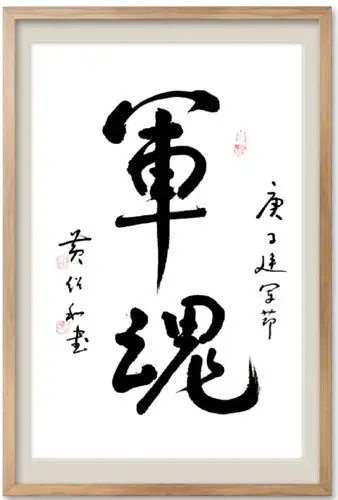 庚子建军节
軍魂
黄绍和书